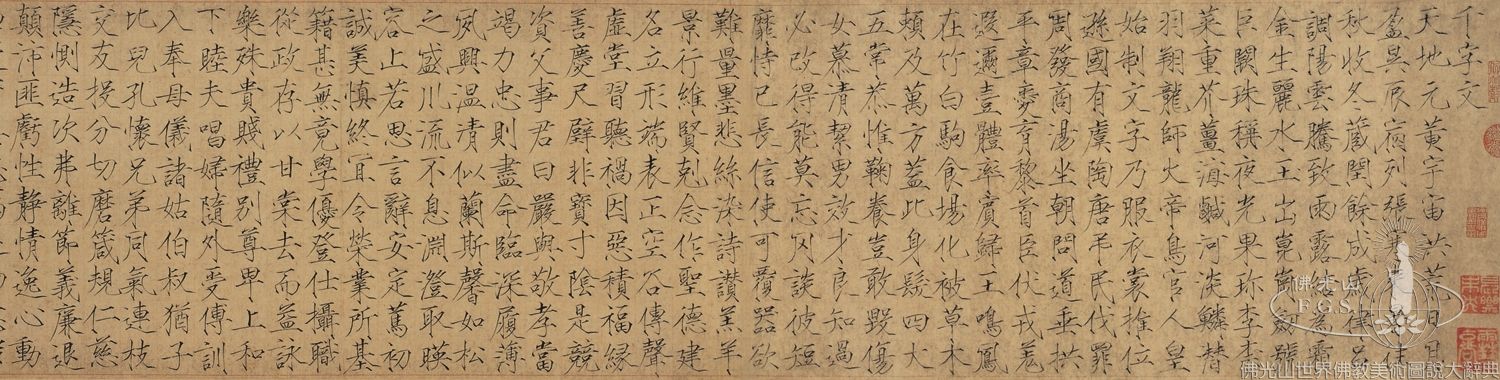 千字文
天地元黃宇宙洪荒日月
盈昃辰宿列張寒來暑往
秋收冬藏閏餘成歲律呂
調陽雲騰致雨露結為霜
金生麗水玉出崑崗劔號
巨闕珠稱夜光果珍李柰
菜重芥薑海鹹河淡鱗潛
羽翔龍師火帝鳥官人皇
始制文字乃服衣裳推位
遜國有虞陶唐弔民伐罪
周發商湯坐朝問道垂拱
平章愛育黎首臣伏戎羌
遐邇壹體率賓歸王鳴鳳
在竹白駒食場化被草木
賴及萬方蓋此身髮四大
五常恭惟鞠養豈敢毀傷
女慕清絜男效才良知過
必改得能莫忘罔談彼短
靡恃己長信使可覆器欲
難量墨悲絲染詩讚羔羊
景行維賢克念作聖德建
名立形端表正空谷傳聲
虛堂習聽禍因惡積福緣
善慶尺璧非寶寸陰是競
資父事君曰嚴與敬孝當
竭力忠則盡命臨深履薄
夙興溫凊似蘭斯馨如松
之盛川流不息淵澄取暎
容止若思言辭安定篤初
誠美慎終宜令榮業所基
籍甚無竟學優登仕攝職
從政存以甘棠去而益詠
樂殊貴賤禮別尊卑上和
下睦夫唱婦隨外受傅訓
入奉母儀諸姑伯叔猶子
比兒孔懷兄弟同氣連枝
交友投分切磨箴規仁慈
隱惻造次弗離節義廉退
顛沛匪虧性靜情逸心動
佛光山
F.G.S.
佛光山世界佛教美術圖說大辭典